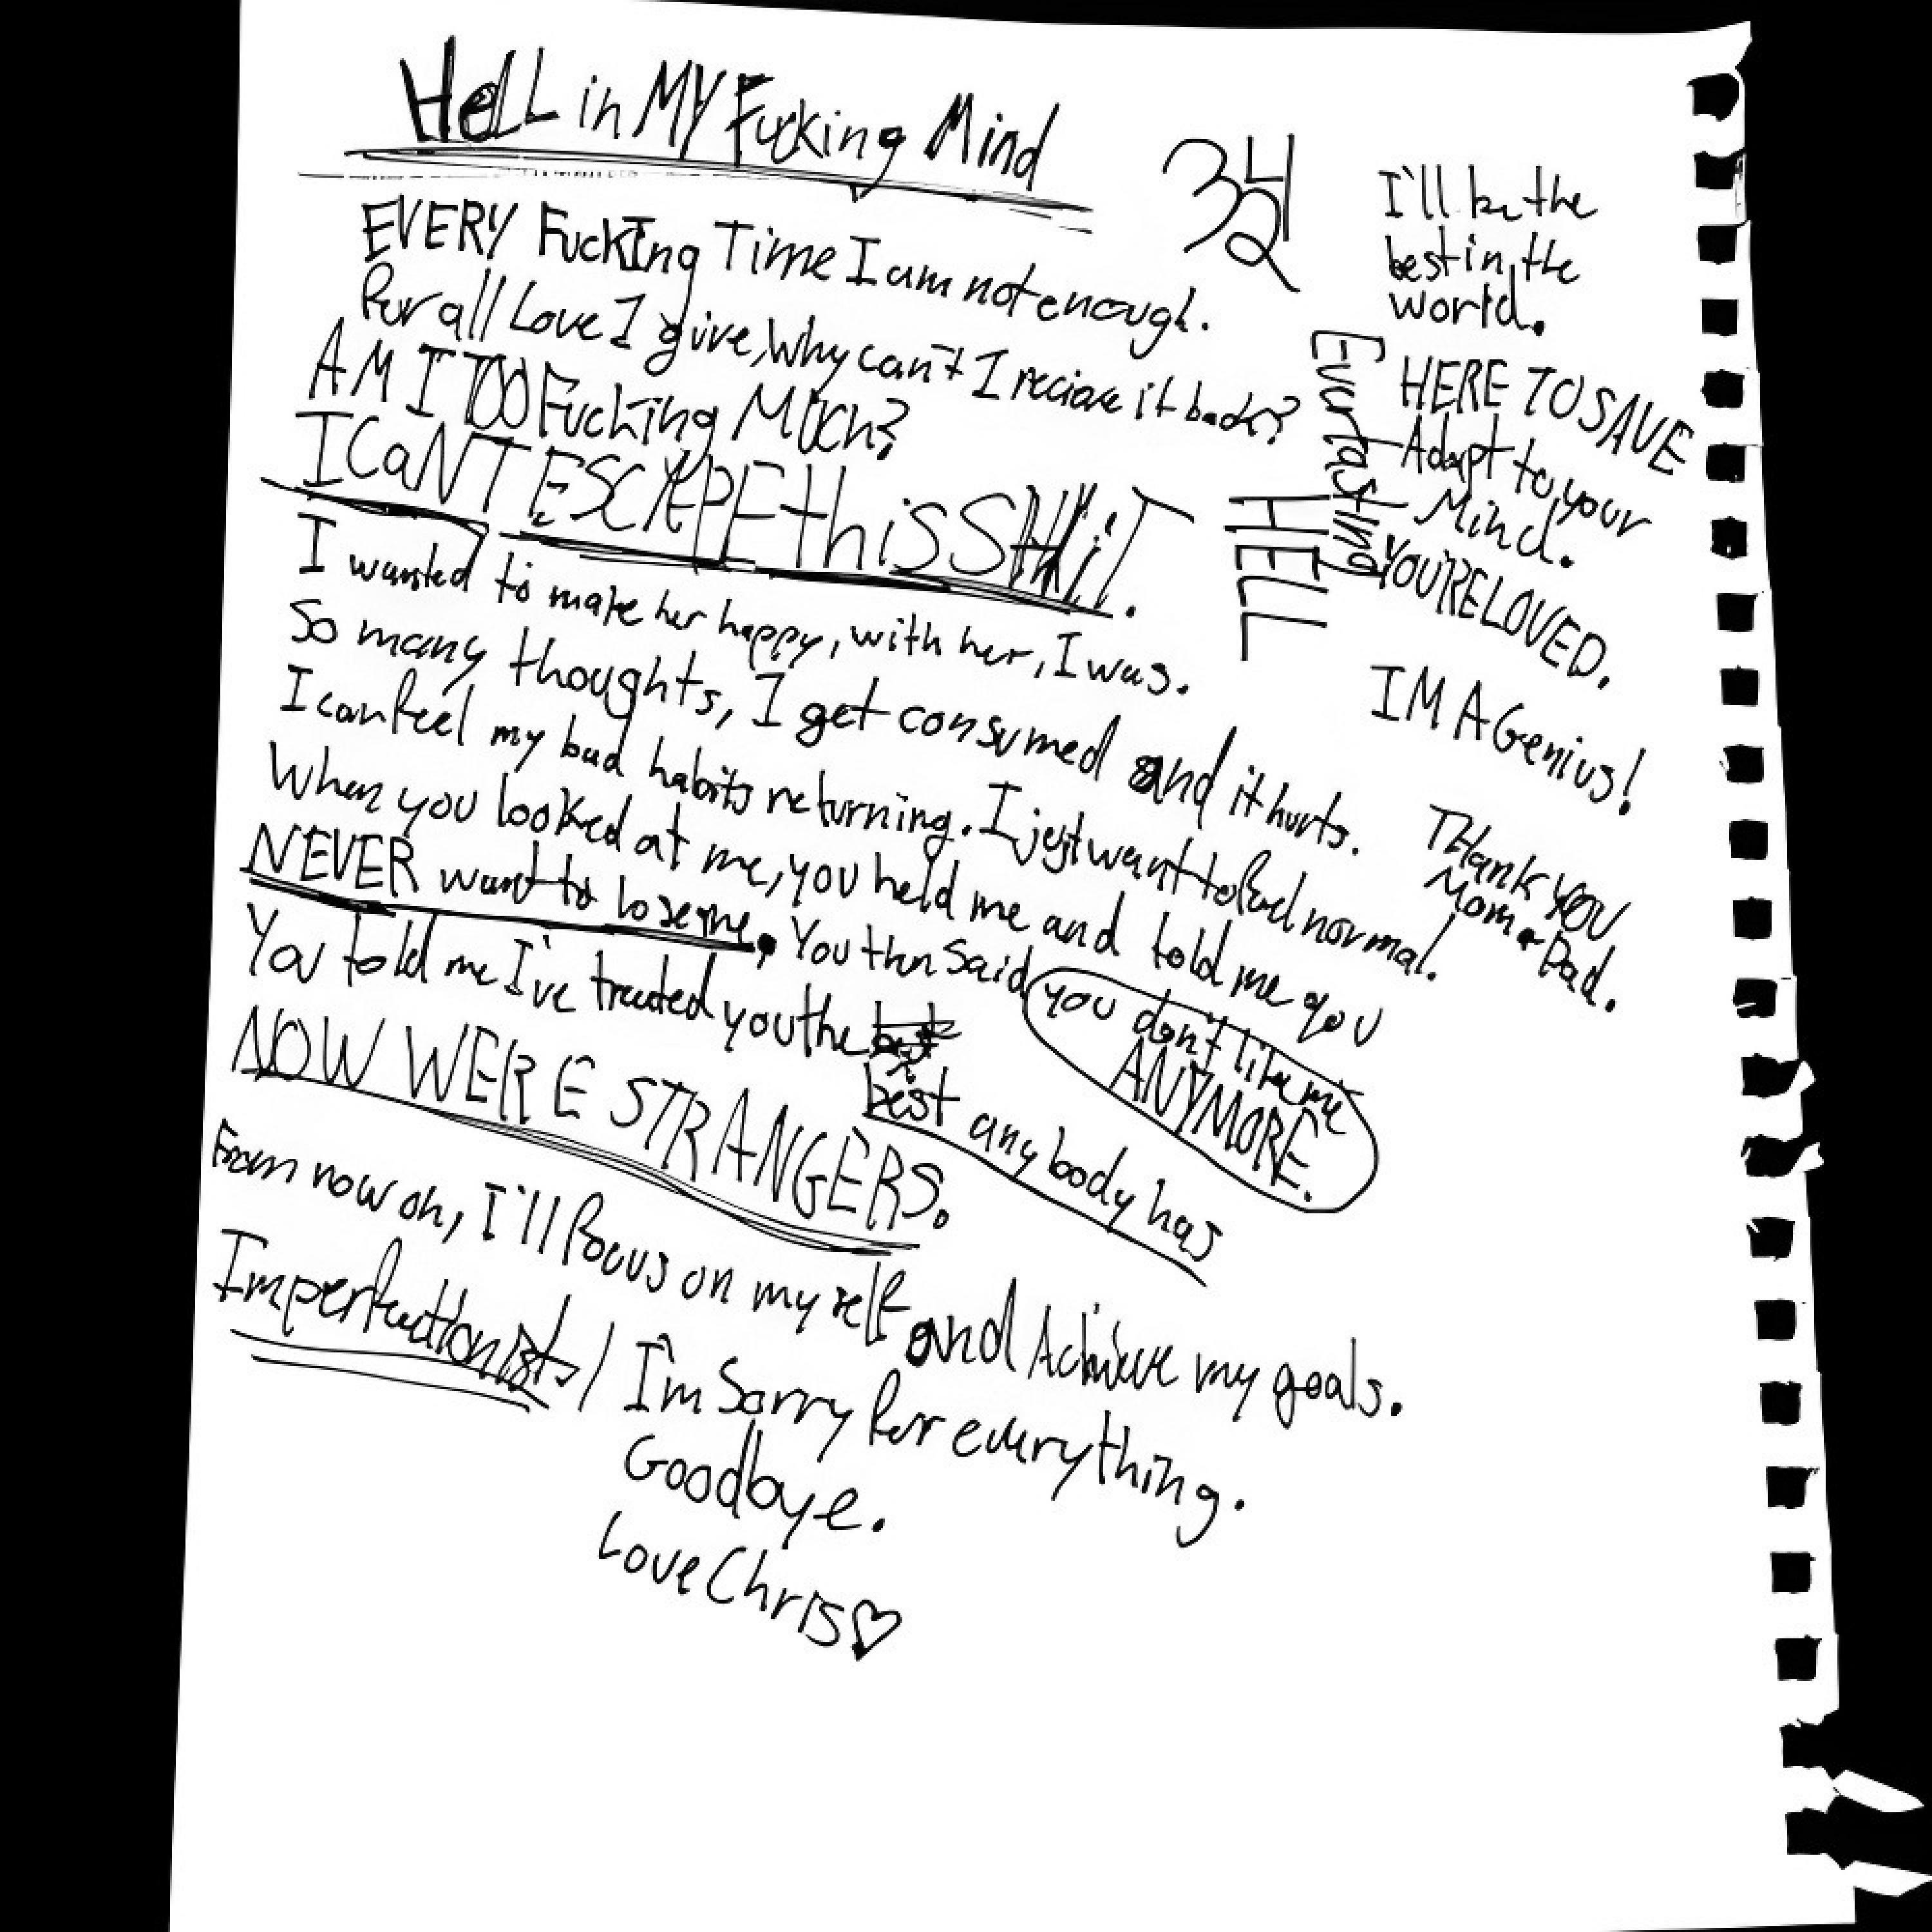 HeLL in MY Fucking Mind
EVERY FuckIng Time I am not enough.
For all Love I give, Why can't I recieve it back?
AM I TOO Fucking MUCh?
I CaNT ESCAPE this SHiT.
I wanted to make her happy, with her, I was.
So many thoughts, I get consumed and it hurts.
I can feel my bad habits returning. I just want to feel normal.
When you looked at me, you held me and told me you
NEVER want to lose me, You then said you don't like me
ANYMORE.
You told me I've treated you the best
best any body has
NOW WERE STRANGERS.
From now on, I'll focus on myself and Achieve my goals.
Imperfectionists / I'm Sorry for everything.
Goodbye.
Love Chris♡
I'll be the
best in the
world.
HERE TO SAVE
Adapt to your
Mind.
YOU'RE LOVED.
Everlasting
HELL
IM A Genius!
THank YOU
Mom & Dad.